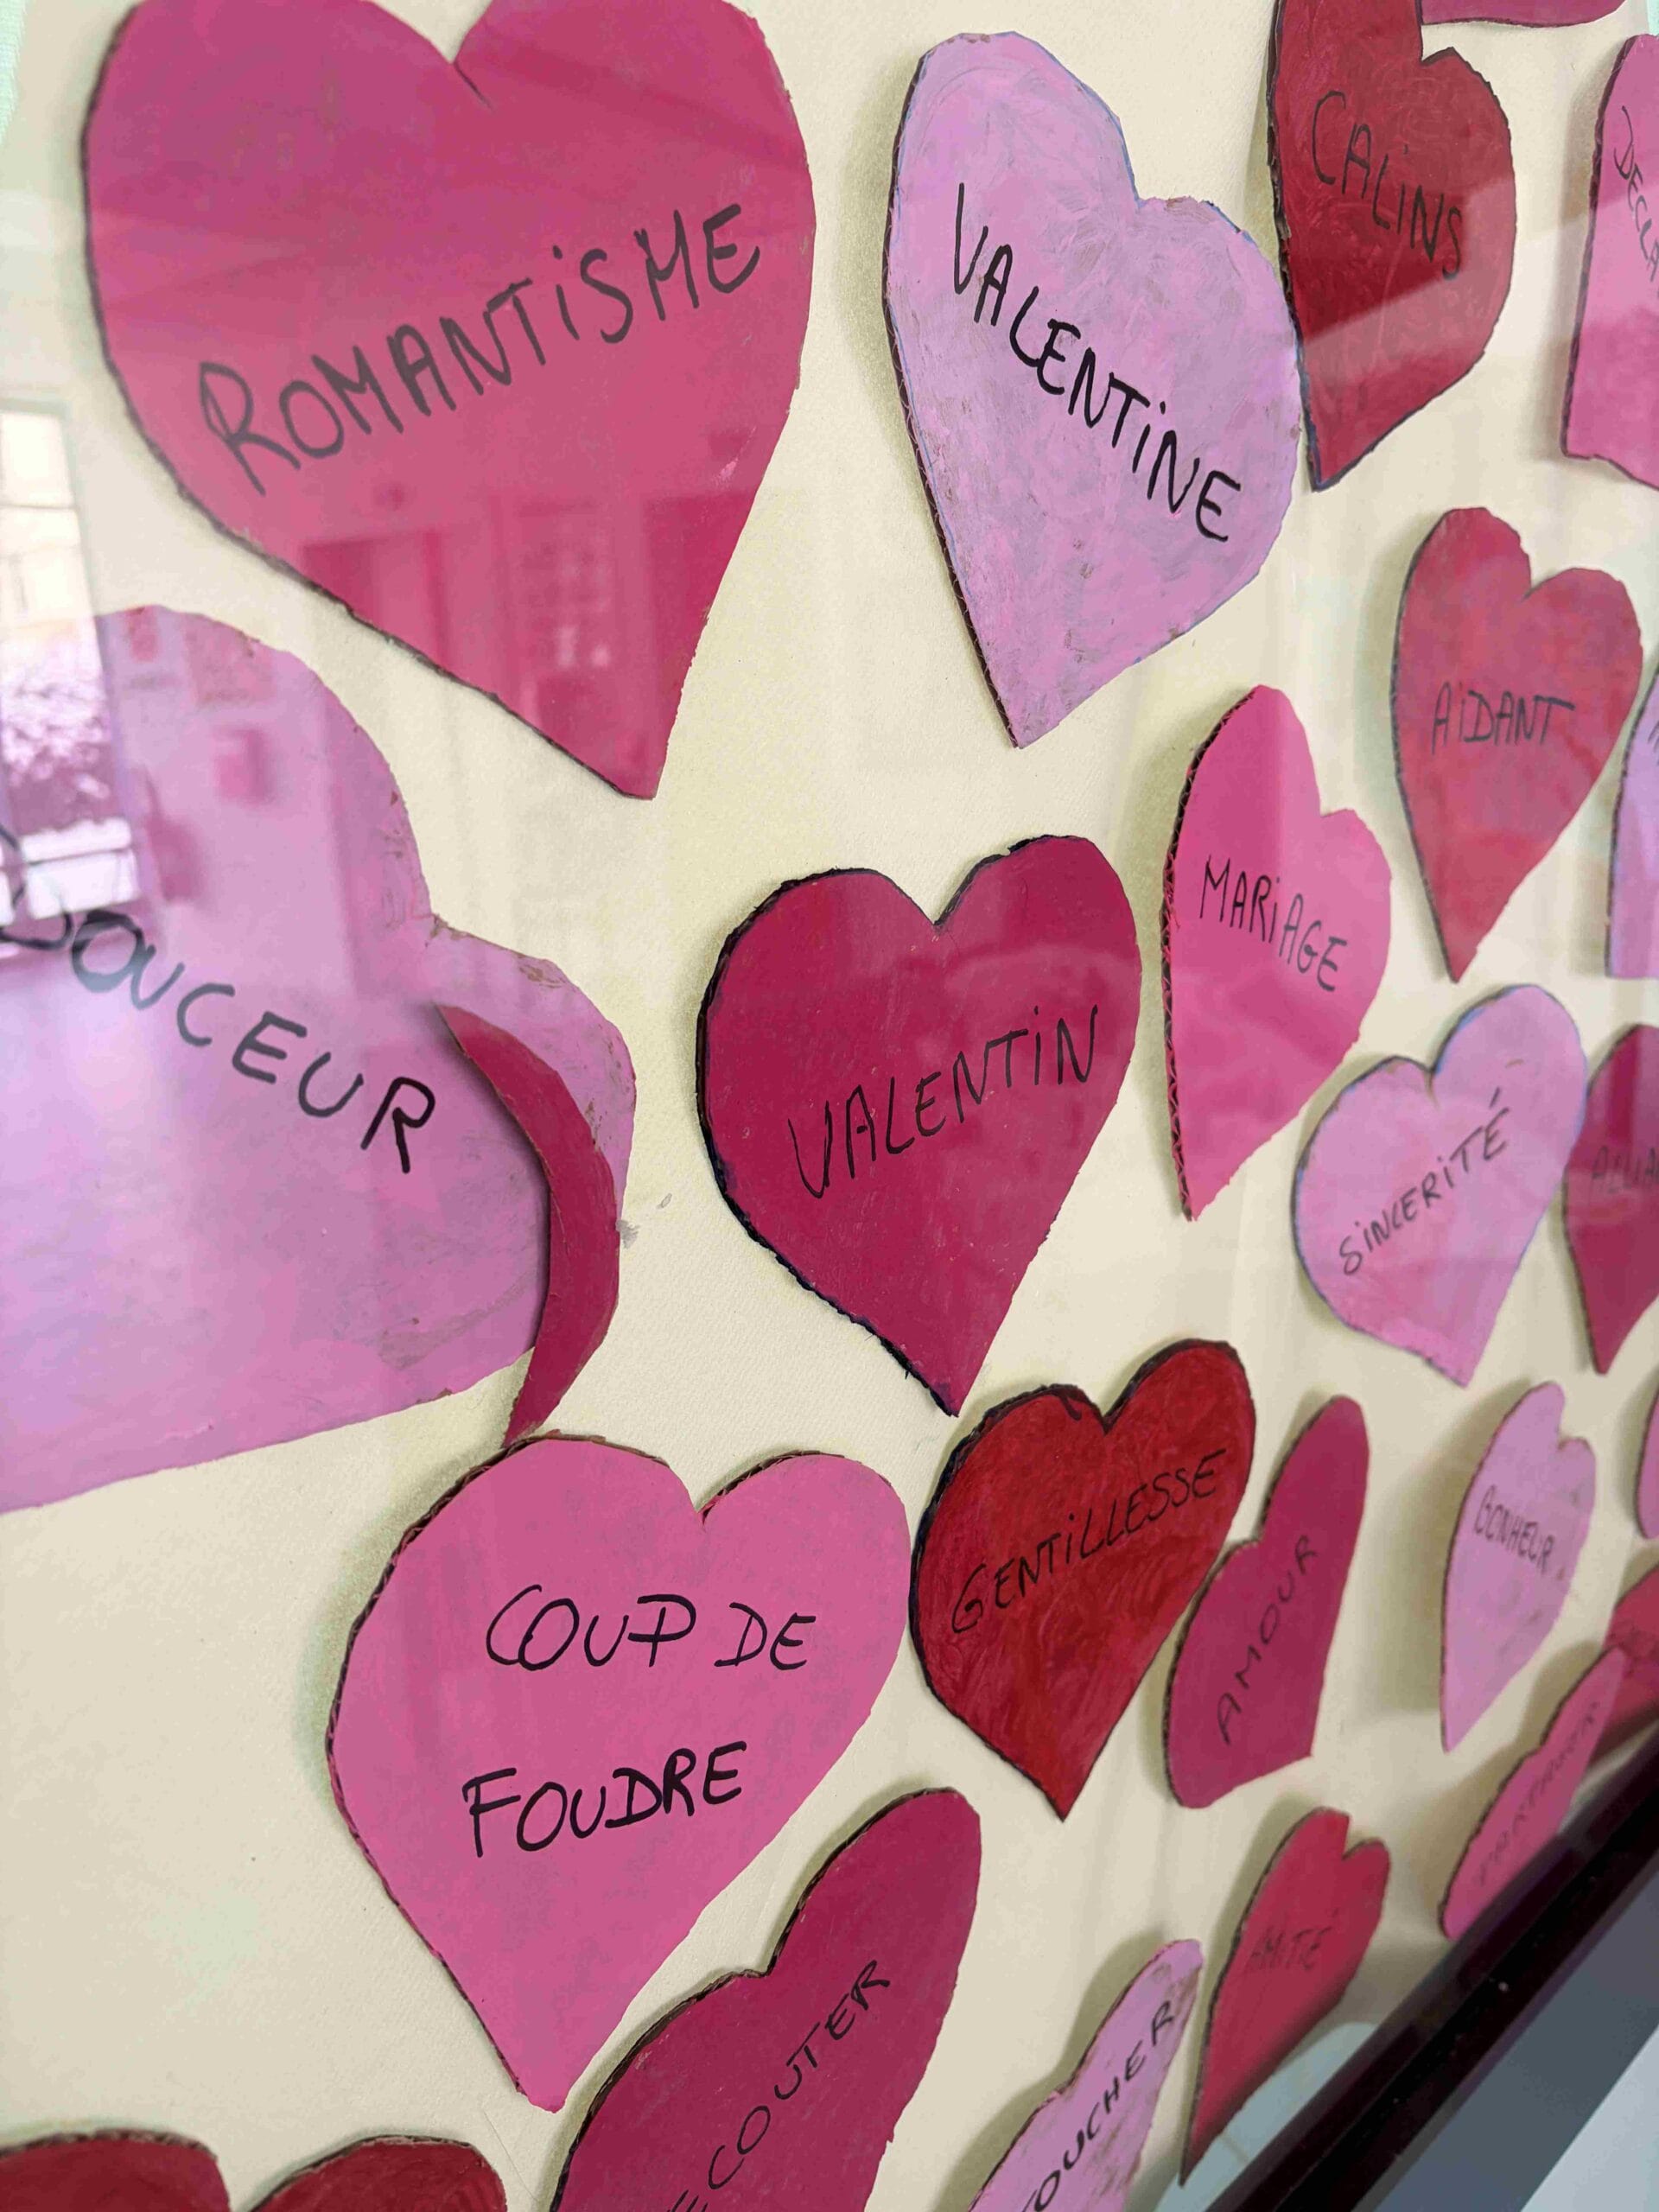 ROMANTiSME
VALENTiNE
CALiNS
AiDANT
DOUCEUR
VALENTiN
MARiAGE
SiNCERiTÉ
COUP DE
FOUDRE
GENTiLLESSE
AMOUR
BONHEUR
ECOUTER
TOUCHER
AMiTiÉ